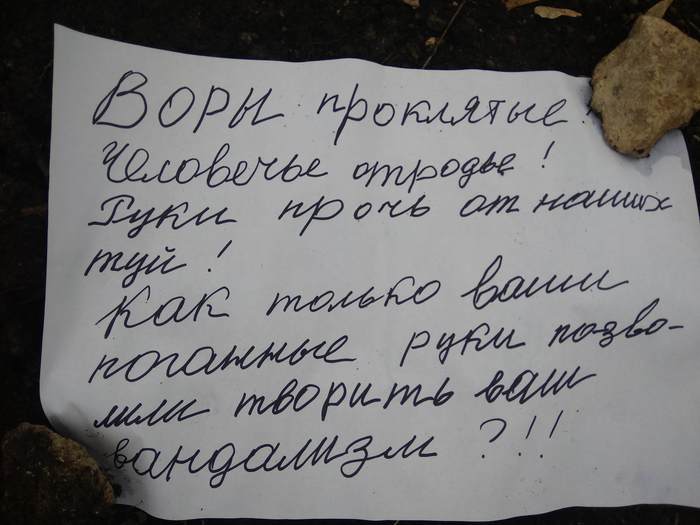 Воры проклятые!
Человечье отродье!
Руки прочь от наших
туй!
Как только ваши
поганные руки позво-
лили творить ваш
вандализм?!!